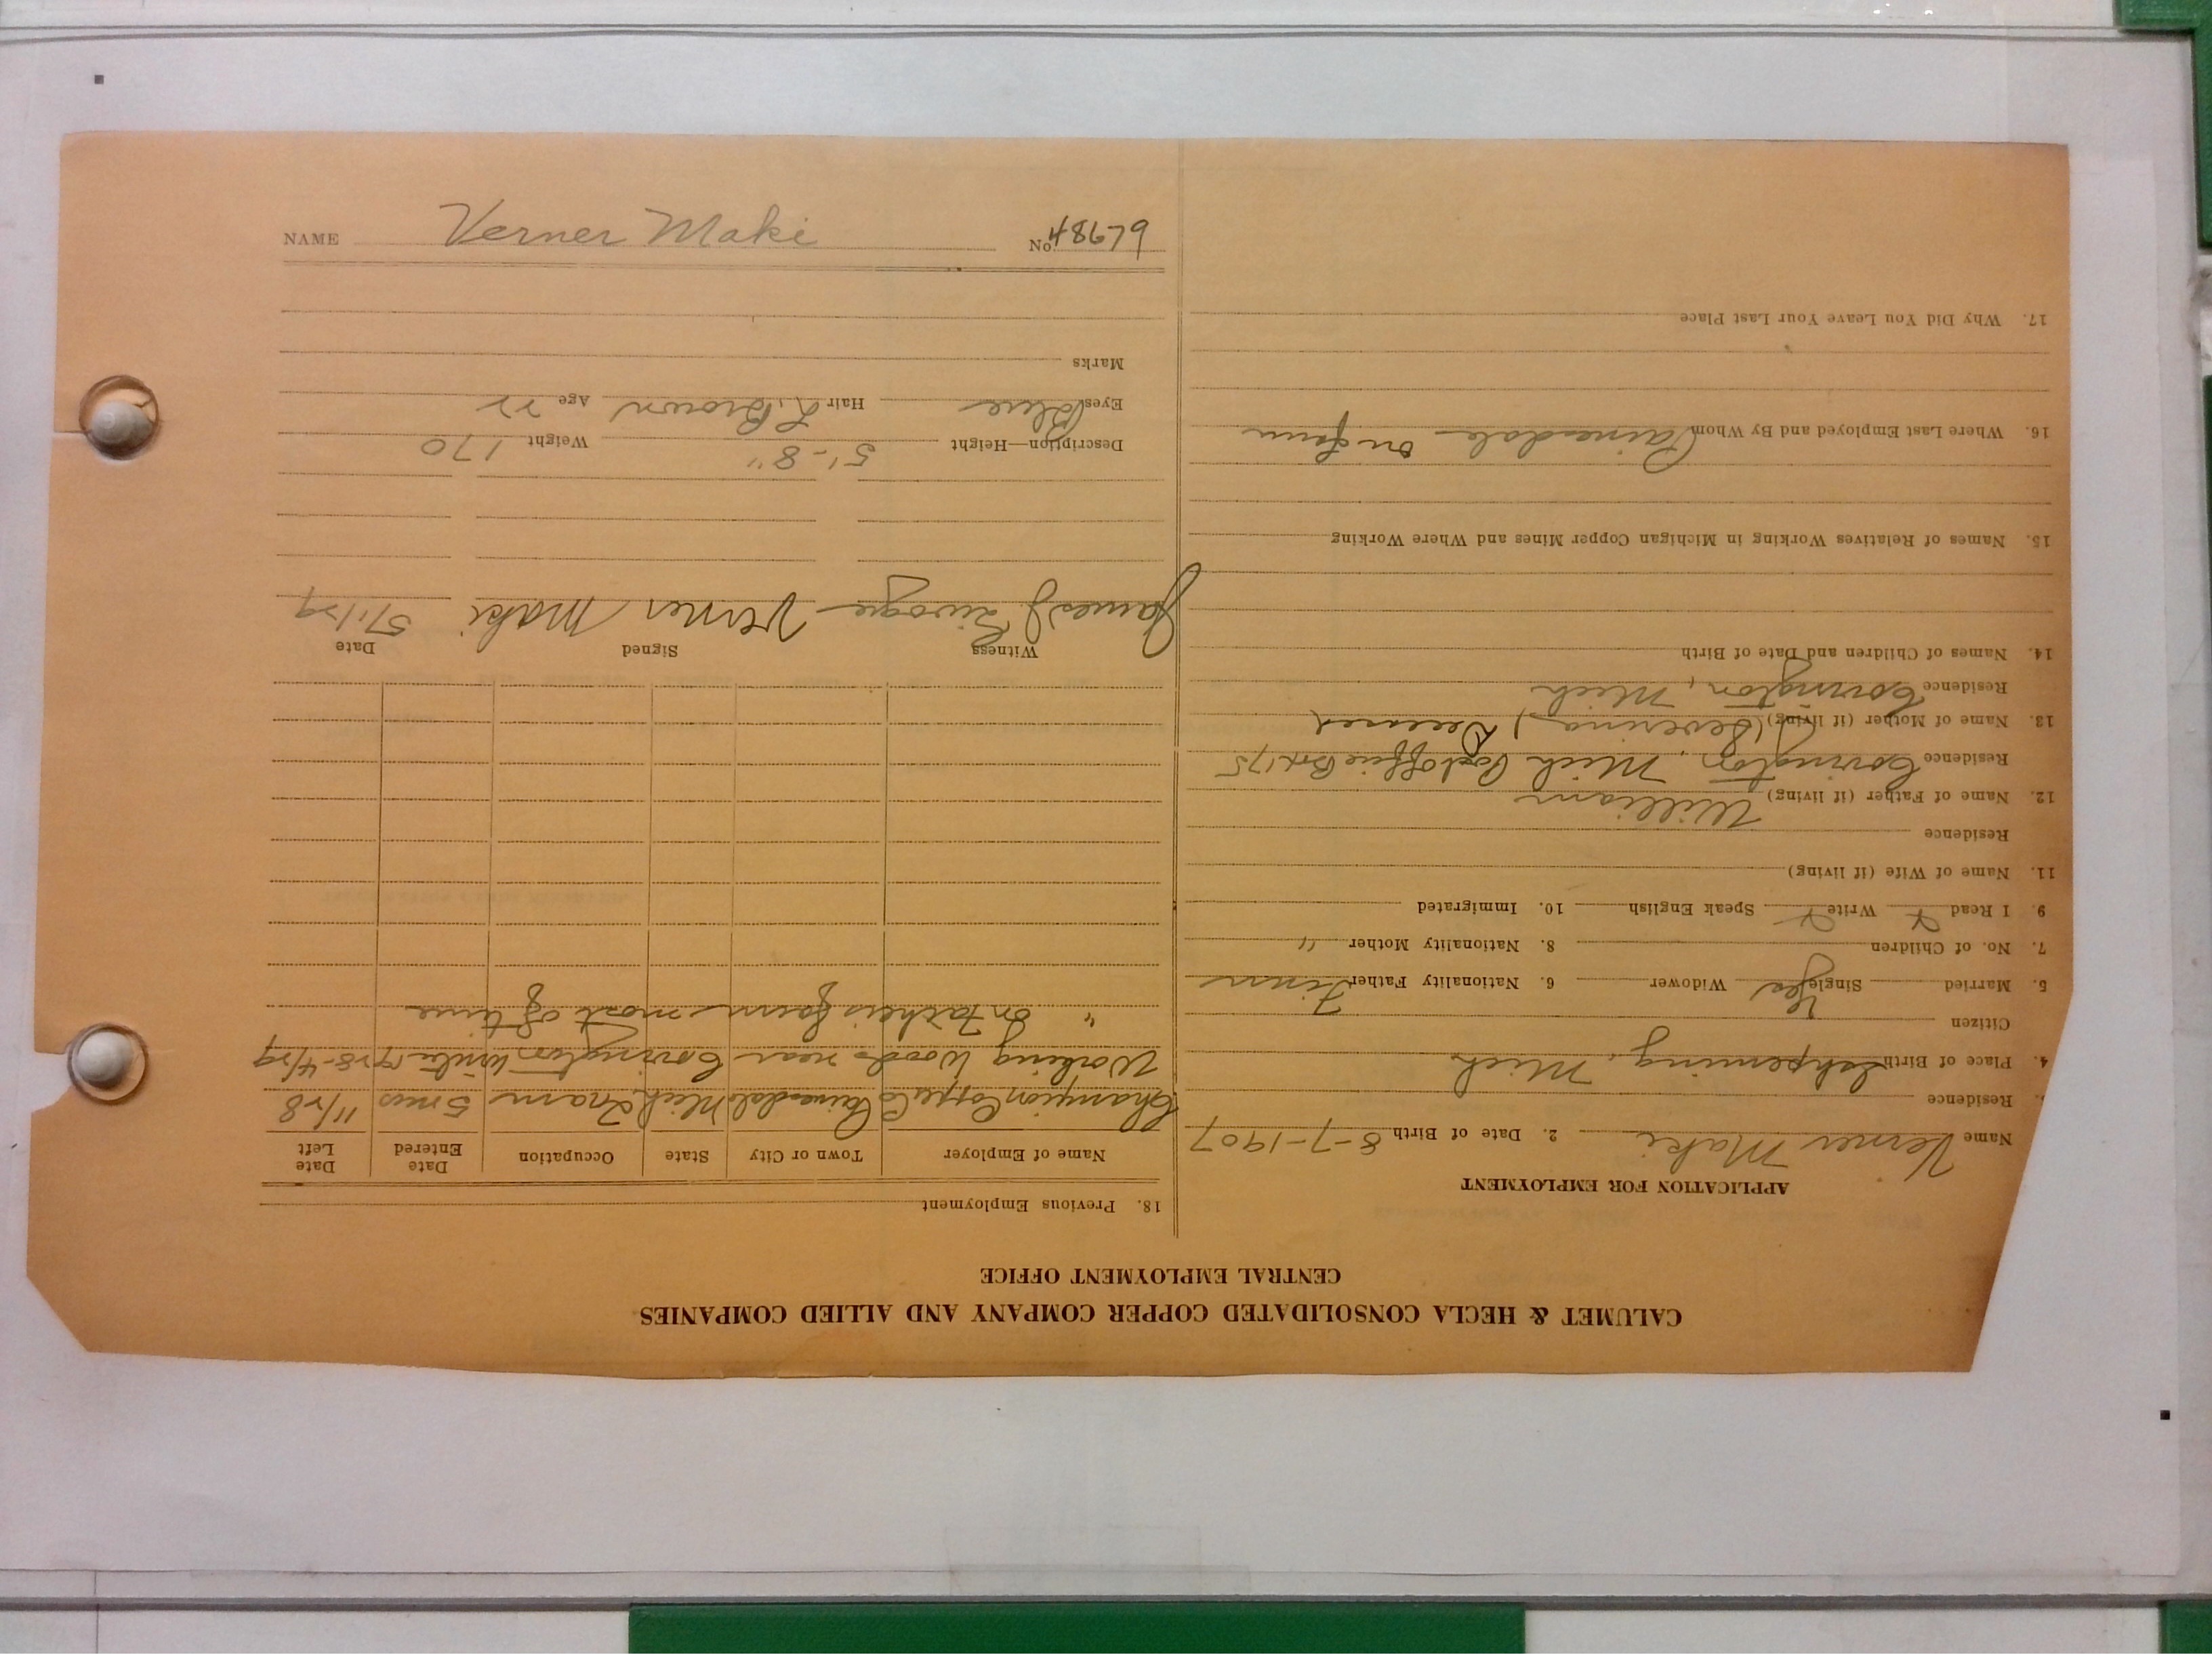 NAME Verner Maki No. 48679
CALUMET & HECLA CONSOLIDATED COPPER COMPANY AND ALLIED COMPANIES
CENTRAL EMPLOYMENT OFFICE
APPLICATION FOR EMPLOYMENT
Name Verner Maki 2. Date of Birth 8-7-1907
Residence
4. Place of Birth Ishpeming, Mich
Citizen
5. Married Single Yes Widower 6. Nationality Father Finn
7. No. of Children 8. Nationality Mother "
9. I Read Write Speak English 10. Immigrated
11. Name of Wife (if living)
Residence
12. Name of Father (if living) William
Residence Covington, Mich Postoffice Box 175
13. Name of Mother (if living) (Severina) Deceased
Residence Covington, Mich
14. Names of Children and Date of Birth
15. Names of Relatives Working in Michigan Copper Mines and Where Working
16. Where Last Employed and By Whom Painesdale on farm
17. Why Did You Leave Your Last Place
18. Previous Employment
Name of Employer Town or City State Occupation Date Entered Date Left
Champion Copper Co Painesdale Mich Tram 5 mos 11/28
Working Woods near Covington Winter 1928-4/29
" On Fathers farm most of time
Witness Signed Date
James J. Verner Maki 5/1/29
Description—Height 5'-8" Weight 170
Eyes Blue Hair L. Brown Age 22
Marks